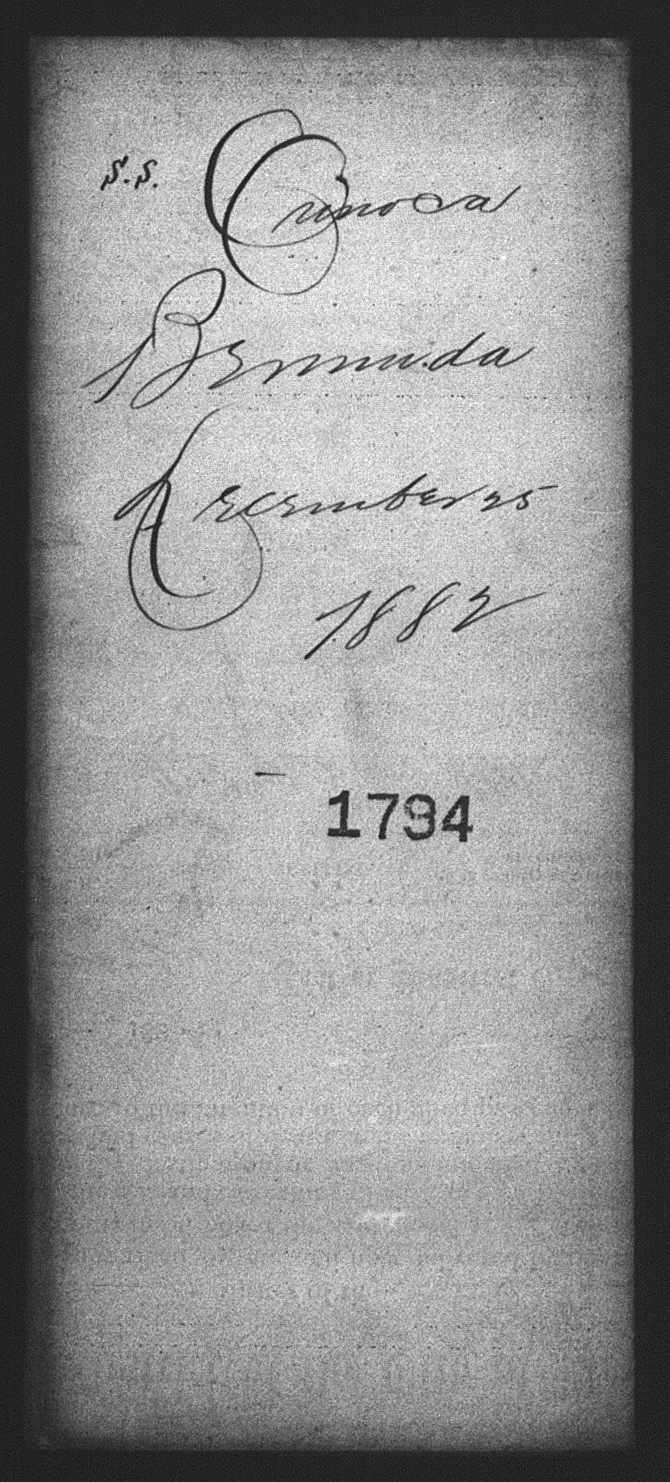 S.S.
Bermuda
December 25
1882
1794